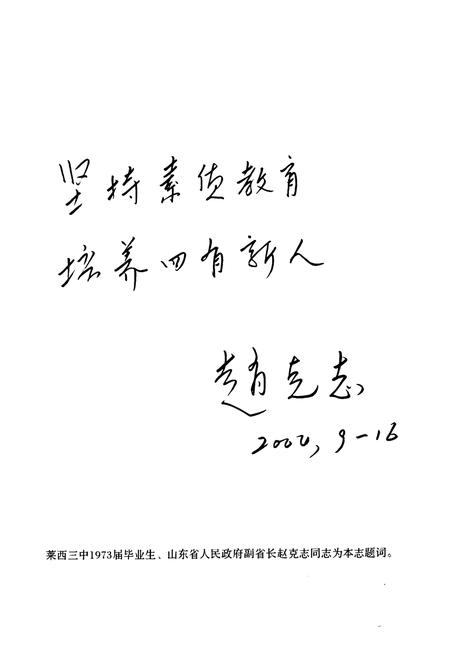 坚持素质教育
培养四有新人
趙克志
2000, 9-16
莱西三中1973届毕业生、山东省人民政府副省长赵克志同志为本志题词。